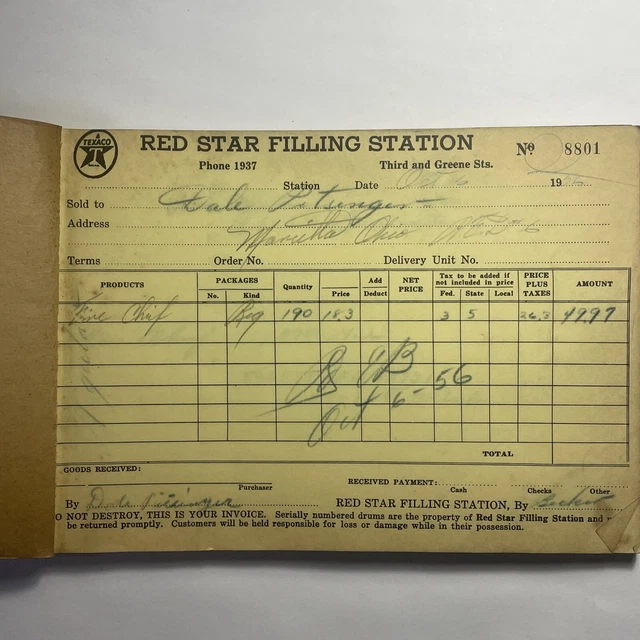 A TEXACO T REG. T.M.
RED STAR FILLING STATION
Nº 8801
Phone 1937 Third and Greene Sts.
Station Date Oct 6 1956
Sold to Dale
Address Marietta Ohio
Terms Order No. Delivery Unit No.
PRODUCTS PACKAGES No. Kind Quantity Price Add Deduct NET PRICE Tax to be added if not included in price Fed. State Local PRICE PLUS TAXES AMOUNT
Fire Chief Reg 190 18.3 3 5 26.3 49.97
Oct 6-56
TOTAL
GOODS RECEIVED:
Purchaser
RECEIVED PAYMENT:
Cash Checks Other
By Dale RED STAR FILLING STATION, By
O NOT DESTROY, THIS IS YOUR INVOICE. Serially numbered drums are the property of Red Star Filling Station and
be returned promptly. Customers will be held responsible for loss or damage while in their possession.